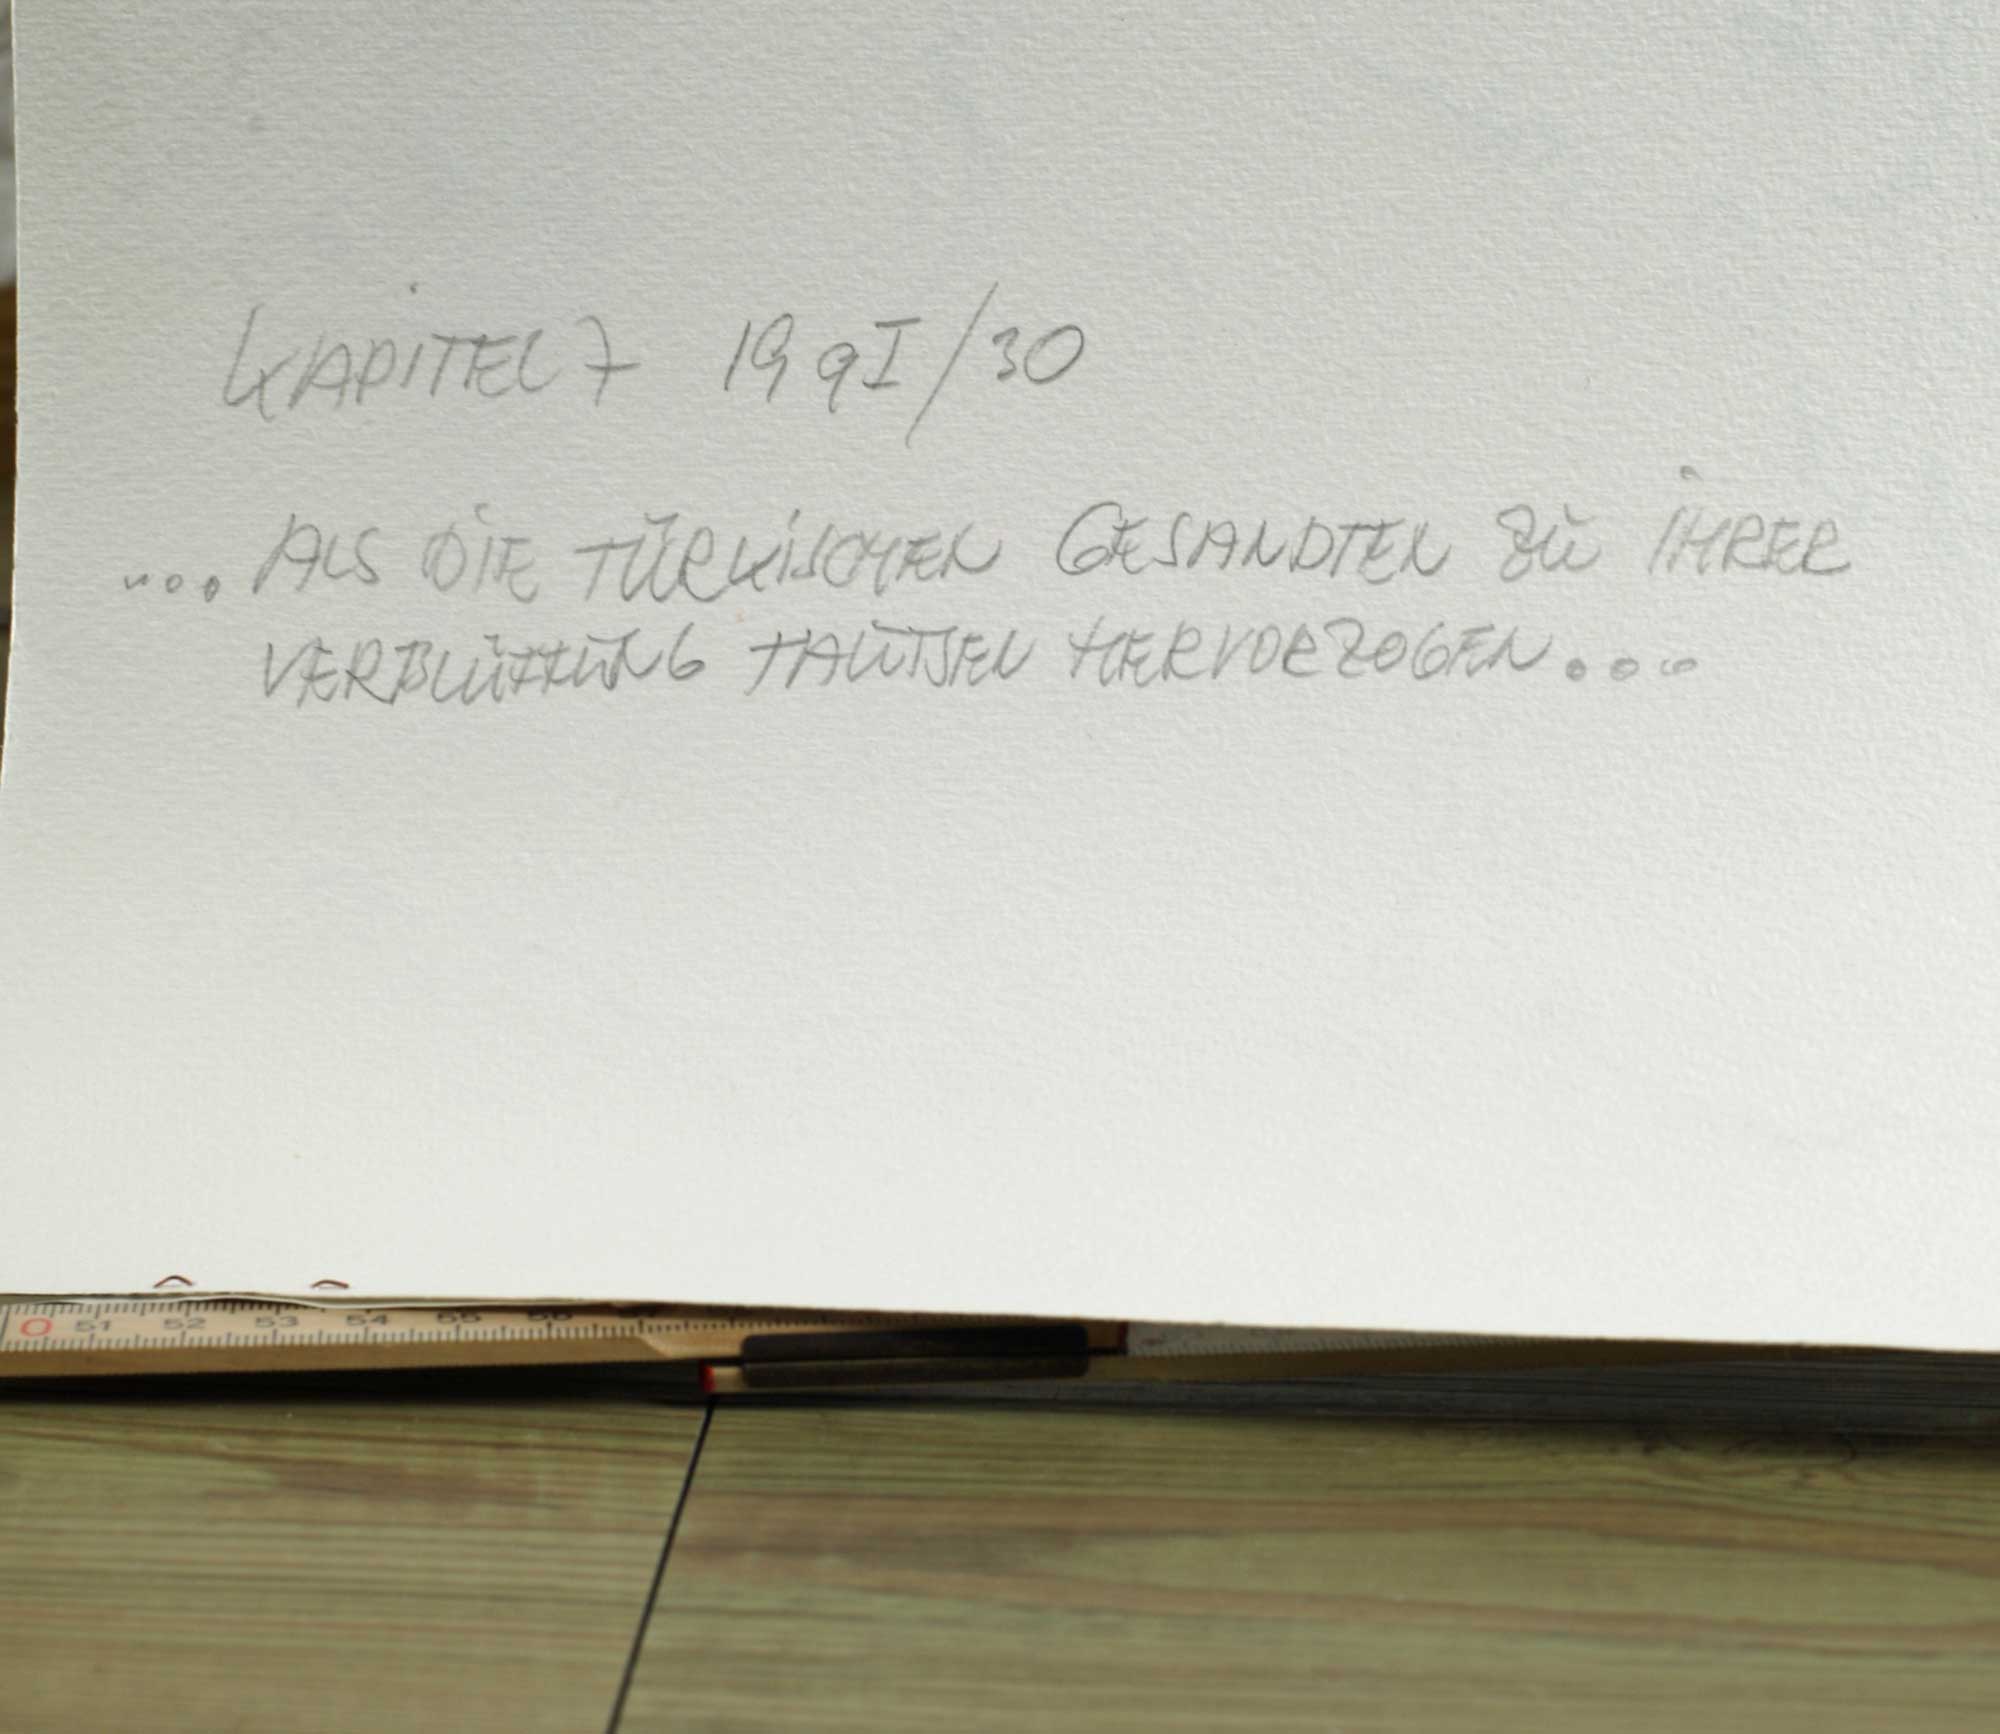 KAPITEL 7 1991/30
... ALS DIE TÜRKISCHEN GESANDTEN ZU IHRER
VERBLÜFFUNG HERVORZOGEN ...
0 51 52 53 54 55 56